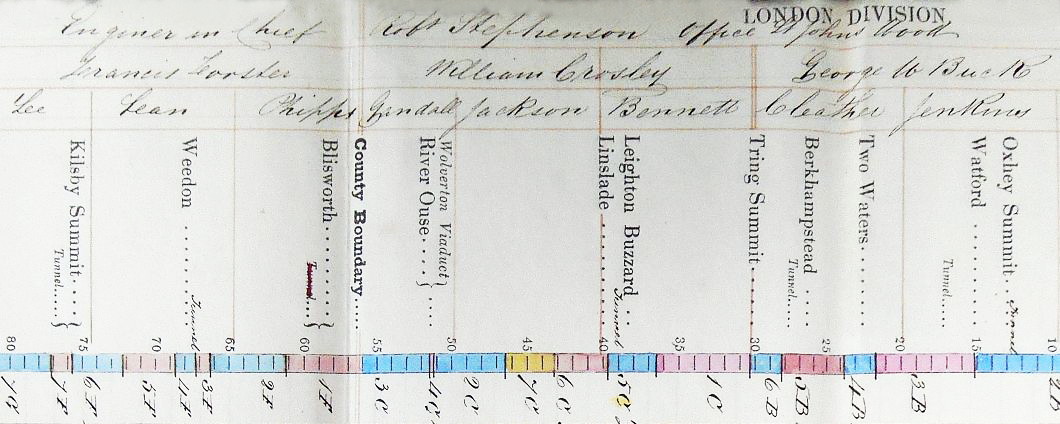 LONDON DIVISION
Enginer in Chief Robt Stephenson Office St Johns Wood
Francis Forster William Crosley George W Buck
Lee Lean Phipps Gandall Jackson Bennett Cleather Jenkins
Kilsby Summit....
Tunnel....
Weedon
Tunnel
Blisworth
Tunnel...
County Boundary
River Ouse....
Wolverton Viaduct
Linslade
Leighton Buzzard
Tunnel
Tring Summit
Berkhampstead
Tunnel.....
Two Waters
Tunnel
Watford
Oxhey Summit
Tunnel
80 75 70 65 60 55 50 45 40 35 30 25 20 15 10
7F 6F 5F 4F 3F 2F 1F 3C 4C 2C 7C 6C 5C 1C 6B 5B 4B 3B 2B